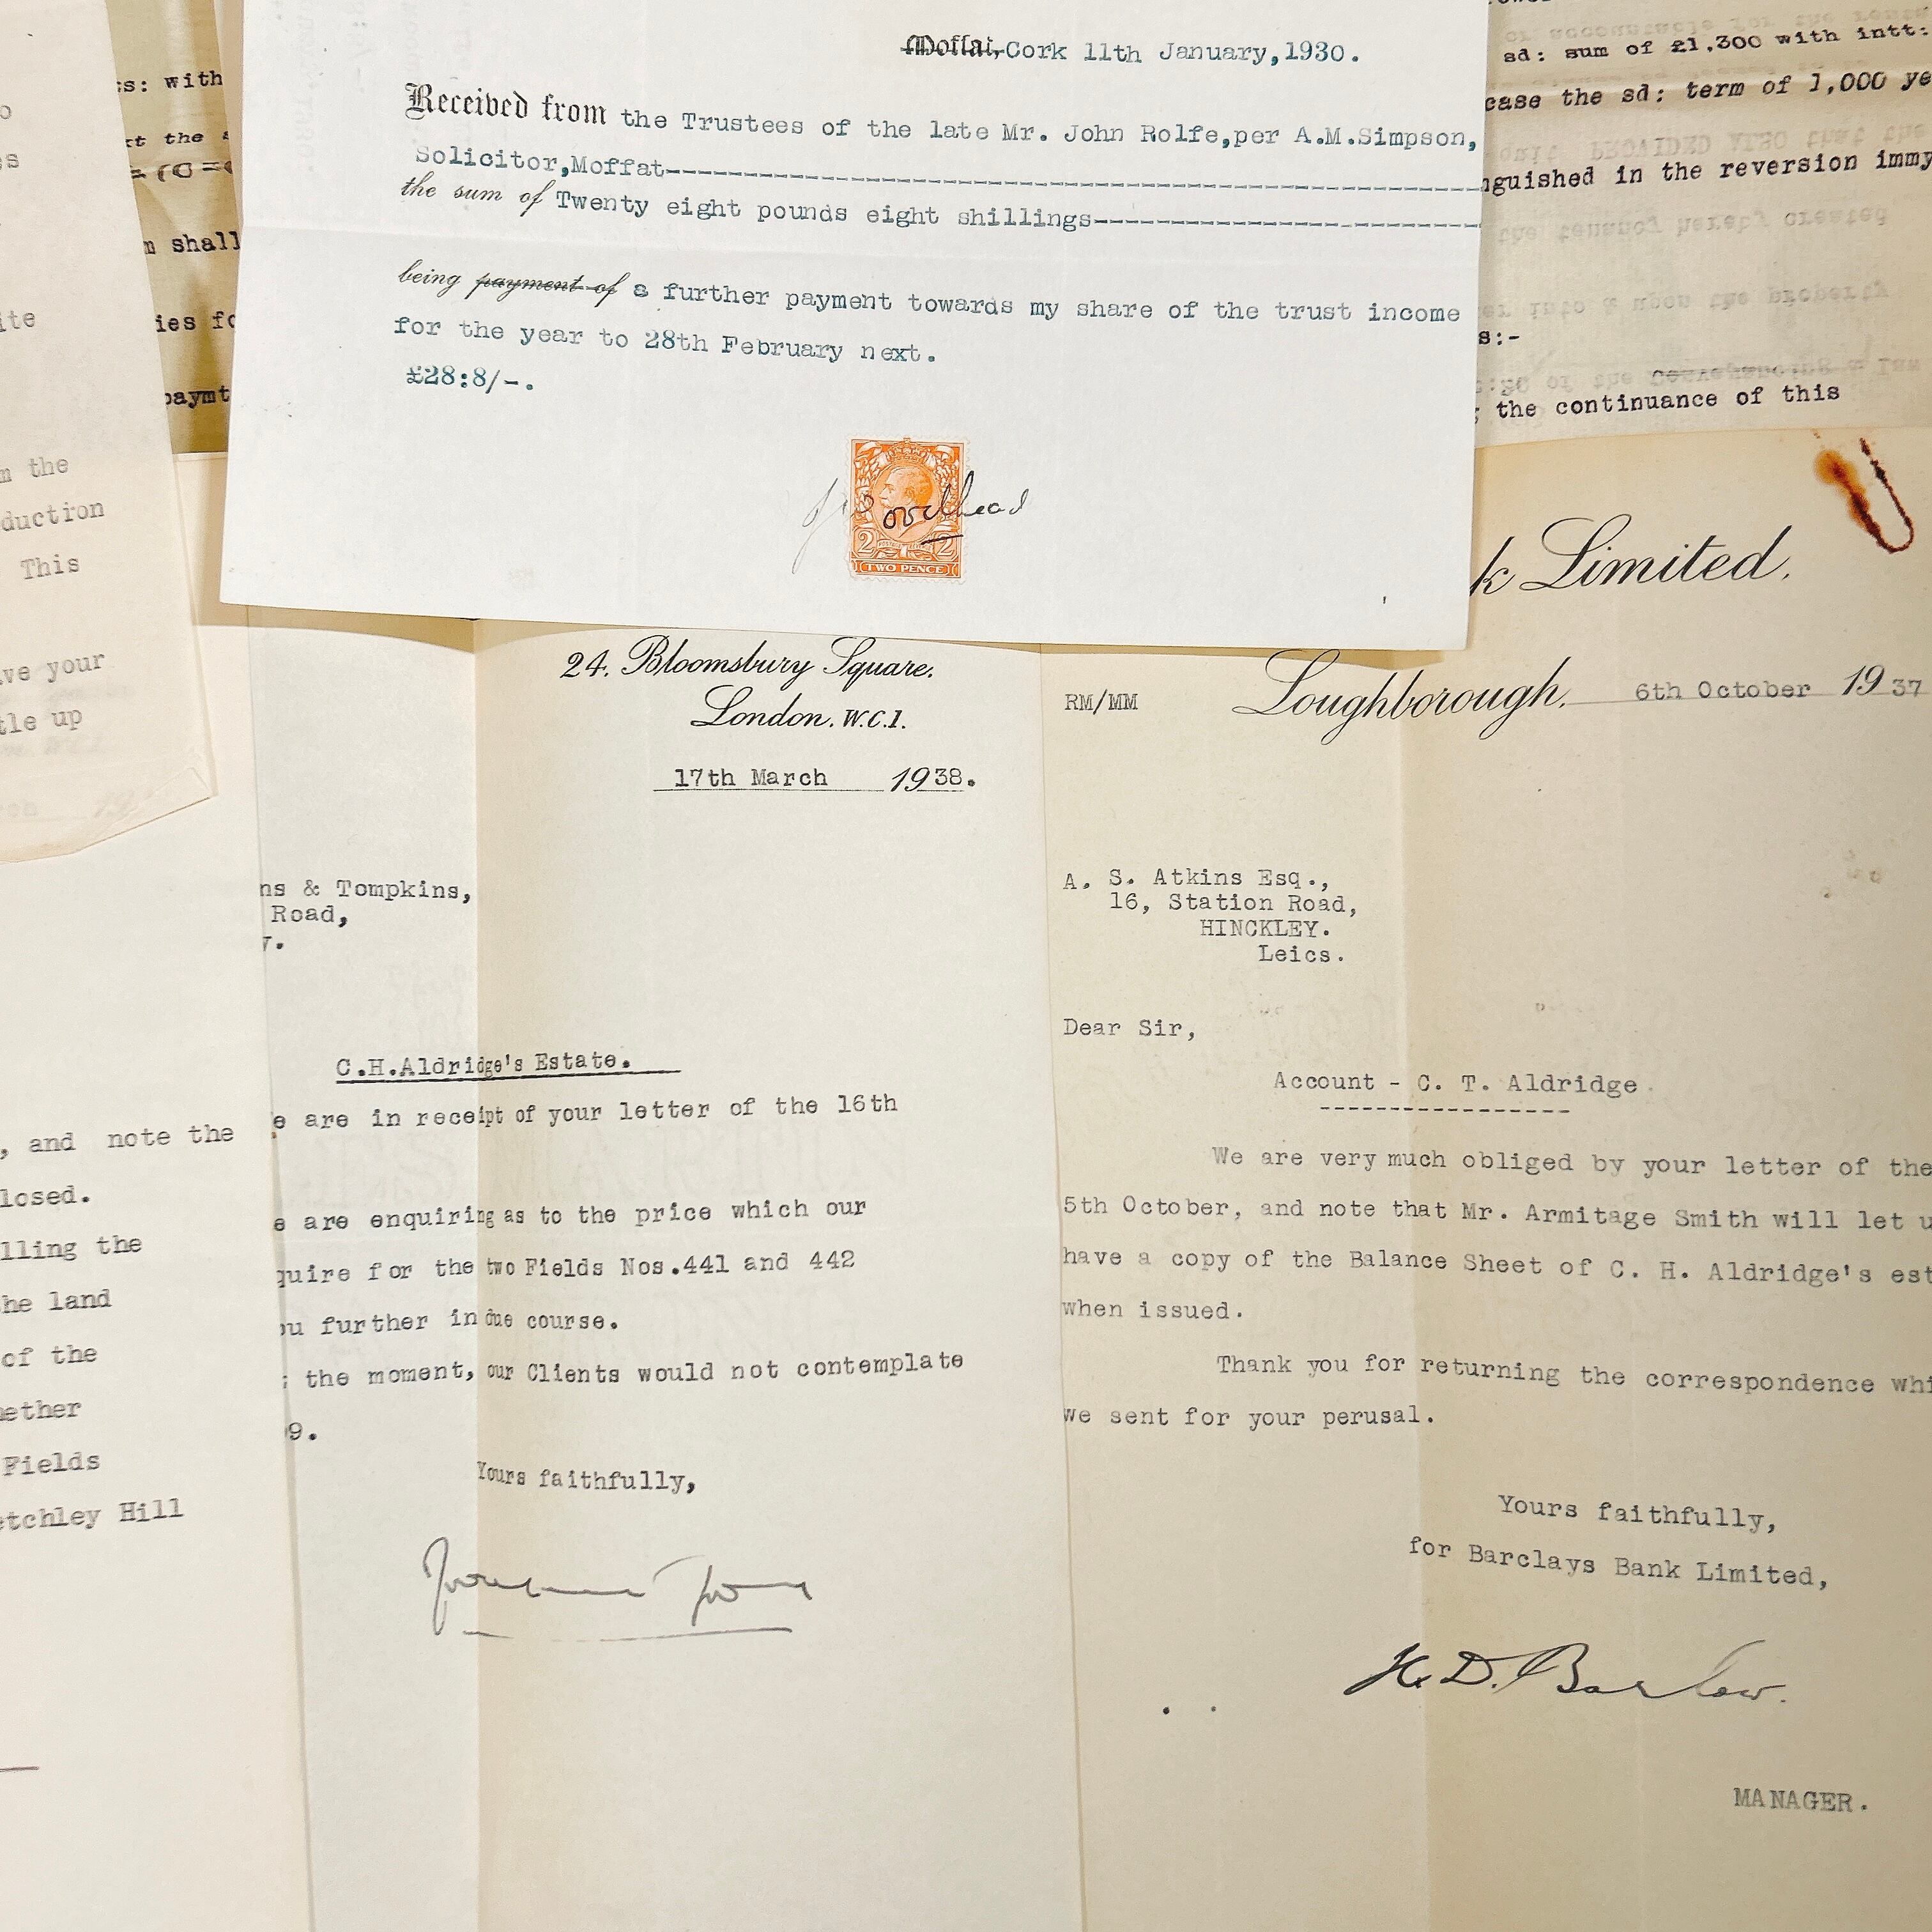 Moffat, Cork 11th January, 1930.
Received from the Trustees of the late Mr. John Rolfe, per A.M.Simpson,
Solicitor, Moffat
the sum of Twenty eight pounds eight shillings
being payment of a further payment towards my share of the trust income
for the year to 28th February next.
£28:8/-.
Woodhead
2 POSTAGE REVENUE 2
TWO PENCE
cs: with
xt the
m shall
ies fo
paymt
sd: sum of £1,300 with intt:
case the sd: term of 1,000 ye
nguished in the reversion immy
s:-
the continuance of this
ite
m the
duction
This
ve your
tle up
, and note the
losed.
lling the
he land
of the
hether
Fields
etchley Hill
24. Bloomsbury Square.
London. W.C.1.
17th March 1938.
ns & Tompkins,
Road,
y.
C.H.Aldridge's Estate.
e are in receipt of your letter of the 16th
e are enquiring as to the price which our
quire for the two Fields Nos.441 and 442
ou further in due course.
the moment, our Clients would not contemplate
9.
Yours faithfully,
k Limited.
RM/MM
Loughborough, 6th October 1937
A. S. Atkins Esq.,
16, Station Road,
HINCKLEY.
Leics.
Dear Sir,
Account - C. T. Aldridge
We are very much obliged by your letter of the
5th October, and note that Mr. Armitage Smith will let u
have a copy of the Balance Sheet of C. H. Aldridge's est
when issued.
Thank you for returning the correspondence whi
we sent for your perusal.
Yours faithfully,
for Barclays Bank Limited,
H. D. Barlow.
MANAGER.